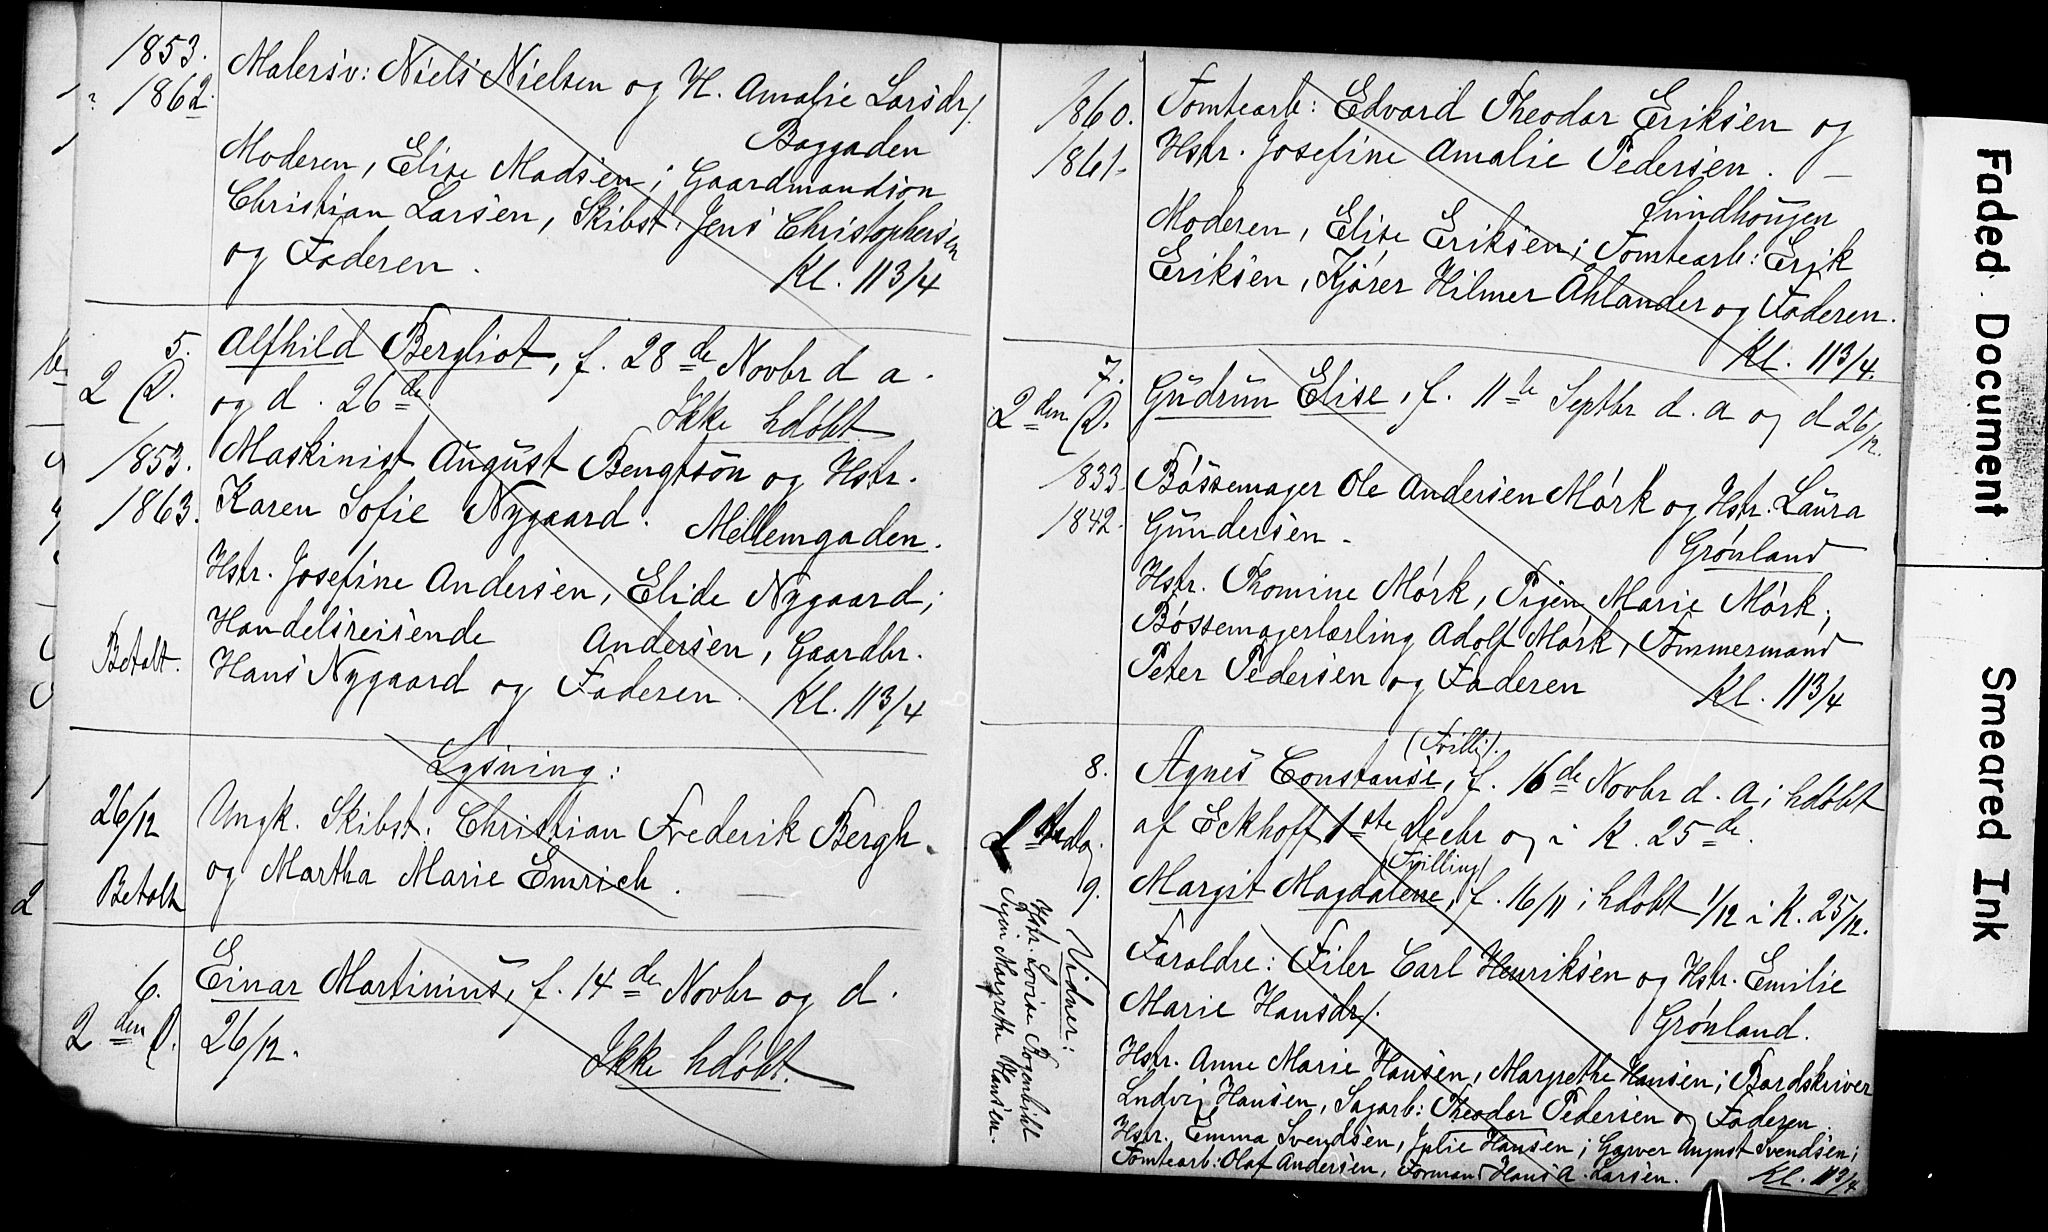 1853.
1862.
Malersv: Niels Nielsen og H. Amalie Larsdr/.
Baggaden
Moderen, Elise Madsen; Gaardmandsøn
Christian Larsen, Skibst. Jens Christophersen
og Faderen.
Kl. 11 3/4
5.
2 D.
Alfhild Bergliot, f. 28de Novbr d a.
og d. 26de
Ikke hdøbt
1853.
1863.
Maskinist August Bengtsön og Hstr.
Karen Sofie Nygaard.
Mellemgaden.
Hstr. Josefine Andersen, Elide Nygaard;
Handelsreisende Andersen, Gaardbr.
Betalt.
Hans Nygaard og Faderen.
Kl. 11 3/4
Lysning:
26/12
Ungk. Skibst. Christian Frederik Bergh
og Martha Marie Emrich.
Betalt
6.
2den D.
Einar Martinius, f. 14de Novbr og d.
26/12.
Ikke hdøbt.
1860.
1861.
Tomtearb: Edvard Theodor Eriksen og
Hstr. Josefine Amalie Pedersen.
Sundhougen
Moderen, Elise Eriksen; Tomtearb: Erik
Eriksen, Kjører Hilmer Åhlander og Faderen.
Kl. 11 3/4.
7.
2den D.
Gudrun Elise, f. 11te Septbr d. a og d 26/12.
1833.
1842.
Bøssemager Ole Andersen Mørk og Hstr. Laura
Gundersen.
Grønland
Hstr. Thomine Mørk, Pigen Marie Mørk;
Bøssemagerlærling Adolf Mørk, Tømmermand
Peter Pedersen og Faderen
Kl. 11 3/4
8.
(Tvilli).
Agnes Constanse, f. 16de Novbr d. a; hdøbt
af Eckhoff 1ste Decbr og i K. 25de.
9.
(Tvilling)
Margit Magdalene, f. 16/11; hdøbt 1/12 i K. 25/12.
Forældre: Filer Carl Henriksen og Hstr. Emilie
Marie Hansdr/.
Grønland.
Hstr. Anne Marie Hansen, Margrethe Hansen; Bordskriver
Ludvig Hansen, Sagarb: Theodor Pedersen og Faderen.
Hstr. Emma Svendsen, Julie Hansen; Garver August Svendsen;
Tomtearb: Olaf Andersen, Formand Hans A. Larsen.
Kl. 11 3/4
Vidner:
Hstr. Lovise Rogenhild
Pigen Margrethe Hansen.
Faded Document
Smeared Ink